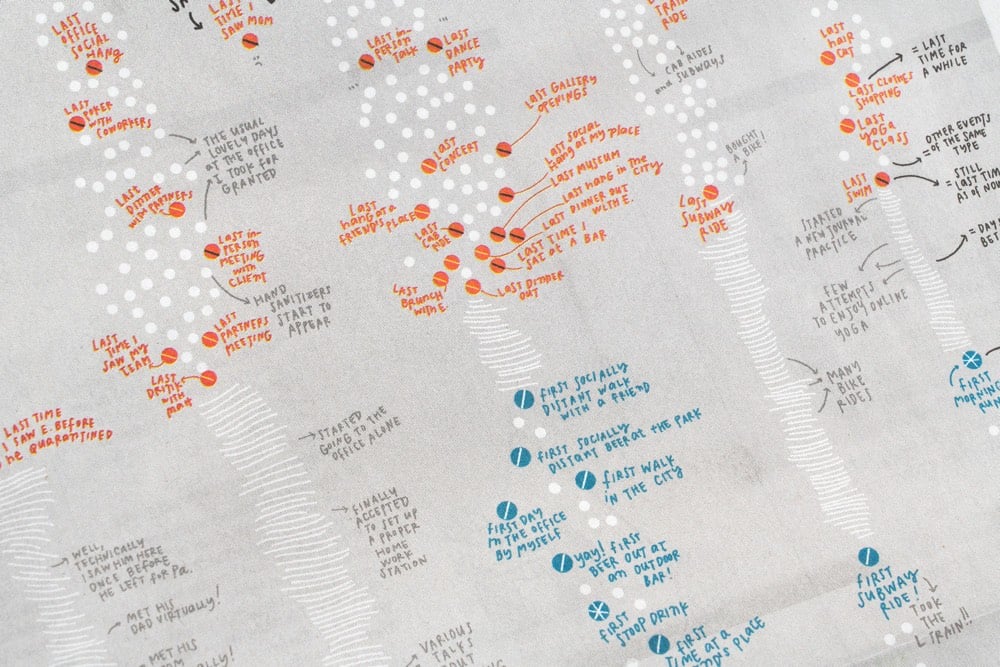 LAST
OFFICE
SOCIAL
HANG
LAST
TIME I
SAW MOM
:(
LAST
POKER
WITH
COWORKERS
THE USUAL
LOVELY DAYS
AT THE OFFICE
I TOOK FOR
GRANTED
LAST
DINNER
WITH PARTNERS
LAST IN-
PERSON
MEETING
WITH
CLIENT
HAND
SANITIZERS
START TO
APPEAR
LAST
PARTNERS
MEETING
LAST
TIME I
SAW MY
TEAM
LAST
DRINK
WITH
MATT
LAST TIME
I SAW E. BEFORE
HE QUARANTINED
STARTED
GOING TO THE
OFFICE ALONE
FINALLY
ACCEPTED
TO SET UP
A PROPER
HOME
WORK
STATION
WELL,
TECHNICALLY
I SAW HIM HERE
ONCE BEFORE
HE LEFT FOR PA.
MET HIS
DAD VIRTUALLY!
MET HIS
VARIOUS
TALKS
LAST IN-
PERSON
TALK
LAST
DANCE
PARTY
LAST GALLERY
OPENINGS
LAST
CONCERT
LAST SOCIAL
HANG AT MY PLACE
LAST MUSEUM
LAST HANG IN THE
CITY
LAST DINNER OUT
WITH E.
LAST
HANG AT A
FRIEND'S PLACE
LAST
CAB
RIDE
LAST TIME I
SAT AT A BAR
LAST
BRUNCH
WITH E.
LAST DINNER
OUT
FIRST SOCIALLY
DISTANT WALK
WITH A FRIEND
FIRST SOCIALLY
DISTANT BEER AT THE PARK
FIRST WALK
IN THE CITY
FIRST DAY
IN THE OFFICE
BY MYSELF
YAY! FIRST
BEER OUT AT
AN OUTDOOR
BAR!
FIRST
STOOP DRINK
FIRST
TIME AT A
PLACE
TRAIN
RIDE
CAB RIDES
AND SUBWAYS
BOUGHT
A BIKE!
LAST
SUBWAY
RIDE
MANY
BIKE
RIDES
FIRST
SUBWAY
RIDE!
TOOK
THE
L TRAIN!!
LAST
HAIR
CUT
LAST CLOTHES
SHOPPING
= LAST
TIME FOR
A WHILE
LAST
YOGA
CLASS
OTHER EVENTS
= OF THE SAME
TYPE
LAST
SWIM
STILL
= LAST TIME
AS OF NOW
STARTED
A NEW JOURNAL
PRACTICE
FEW
ATTEMPTS
TO ENJOY ONLINE
YOGA
FIRST
MORNING
RUN